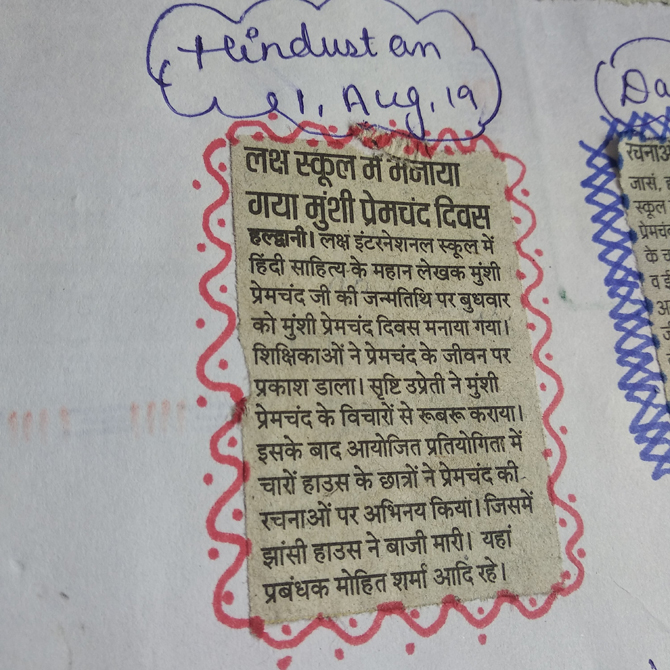 Hindustan
1, Aug, 19
लक्ष स्कूल में मनाया
गया मुंशी प्रेमचंद दिवस
हल्द्वानी। लक्ष इंटरनेशनल स्कूल में
हिंदी साहित्य के महान लेखक मुंशी
प्रेमचंद जी की जन्मतिथि पर बुधवार
को मुंशी प्रेमचंद दिवस मनाया गया।
शिक्षिकाओं ने प्रेमचंद के जीवन पर
प्रकाश डाला। सृष्टि उप्रेती ने मुंशी
प्रेमचंद के विचारों से रूबरू कराया।
इसके बाद आयोजित प्रतियोगिता में
चारों हाउस के छात्रों ने प्रेमचंद की
रचनाओं पर अभिनय किया। जिसमें
झांसी हाउस ने बाजी मारी। यहां
प्रबंधक मोहित शर्मा आदि रहे।
Da
जासं,
स्कूल
के
व